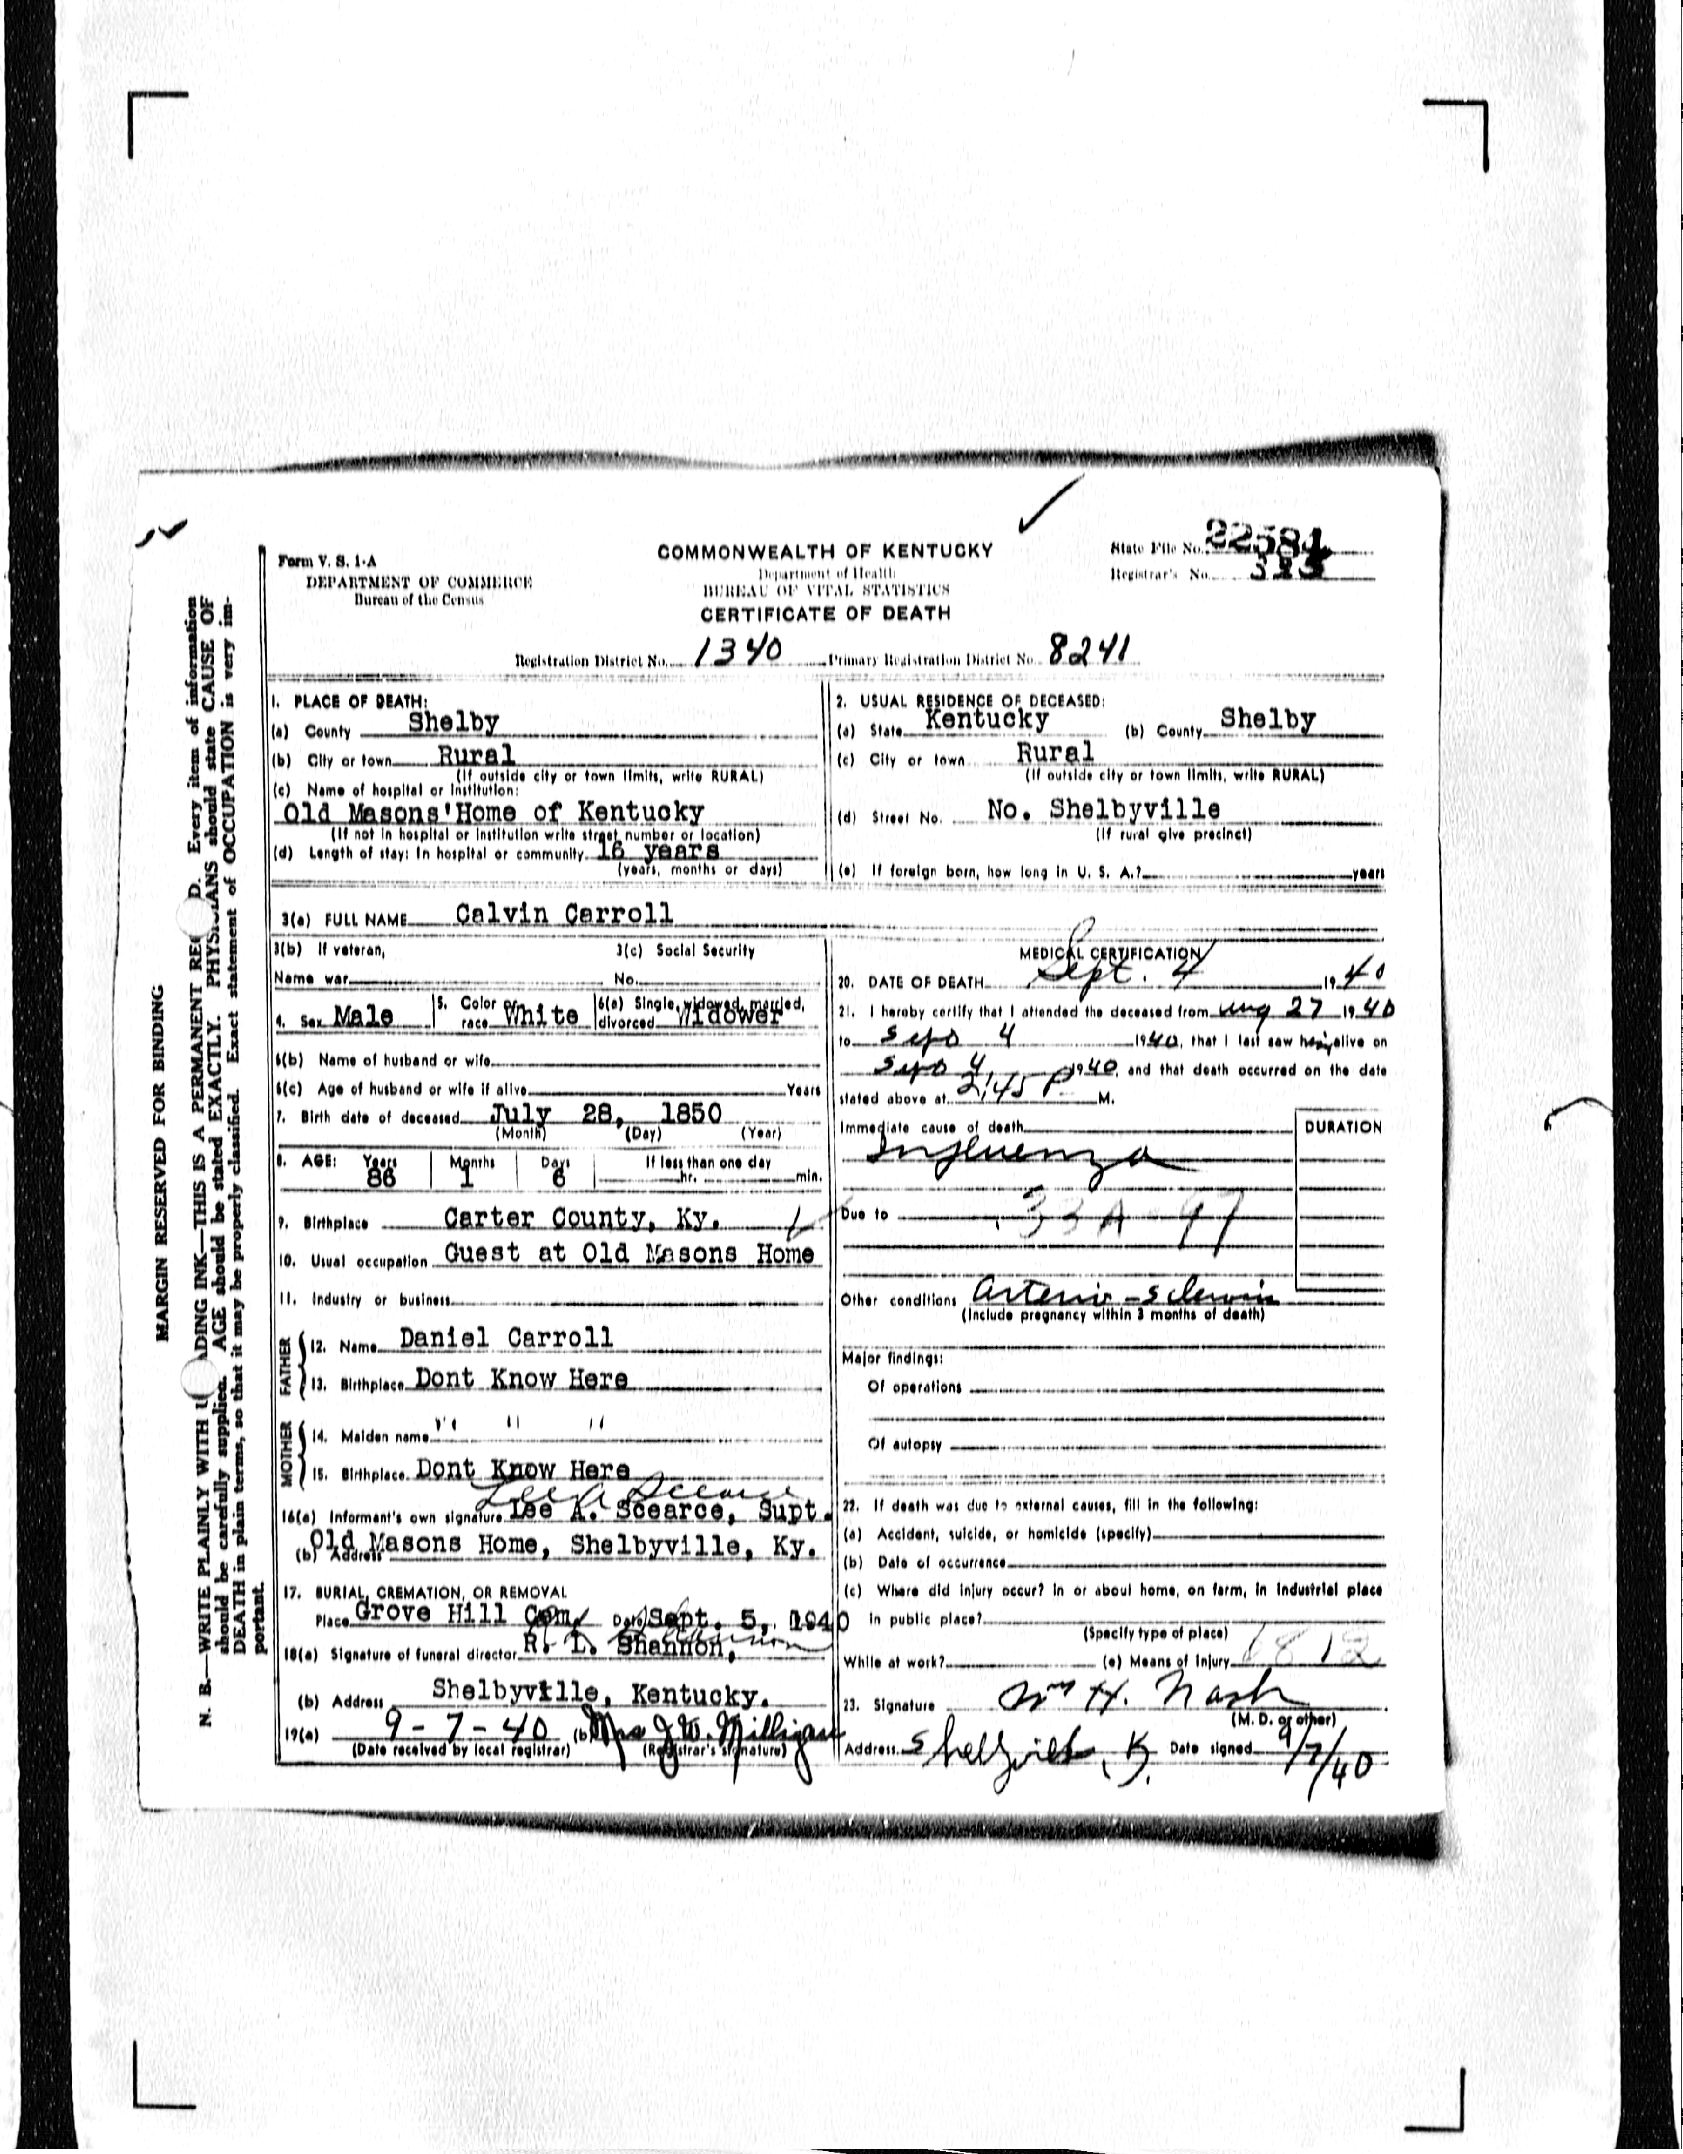 Form V. S. 1-A
DEPARTMENT OF COMMERCE
Bureau of the Census
COMMONWEALTH OF KENTUCKY
Department of Health
BUREAU OF VITAL STATISTICS
CERTIFICATE OF DEATH
State File No. 22581
Registrar's No.
Registration District No. 1340 Primary Registration District No. 8241
MARGIN RESERVED FOR BINDING
N. B.—WRITE PLAINLY WITH ADING INK—THIS IS A PERMANENT RE D. Every item of information
should be carefully supplied. AGE should be stated EXACTLY. PHYSICIANS should state CAUSE OF
DEATH in plain terms, so that it may be properly classified. Exact statement of OCCUPATION is very im-
portant.
1. PLACE OF DEATH:
(a) County Shelby
(b) City or town Rural
(If outside city or town limits, write RURAL)
(c) Name of hospital or institution:
Old Masons' Home of Kentucky
(If not in hospital or institution write street number or location)
(d) Length of stay: In hospital or community 16 years
(years, months or days)
2. USUAL RESIDENCE OF DECEASED:
(a) State Kentucky (b) County Shelby
(c) City or town Rural
(If outside city or town limits, write RURAL)
(d) Street No. No. Shelbyville
(If rural give precinct)
(e) If foreign born, how long in U. S. A.? years
3(a) FULL NAME Calvin Carroll
3(b) If veteran, 3(c) Social Security
Name war No.
4. Sex Male 5. Color or race White 6(a) Single, widowed, married, divorced Widower
6(b) Name of husband or wife
6(c) Age of husband or wife if alive Years
7. Birth date of deceased July 28, 1850
(Month) (Day) (Year)
8. AGE: Years Months Days If less than one day
86 1 6 hr. min.
9. Birthplace Carter County, Ky.
10. Usual occupation Guest at Old Masons Home
11. Industry or business
FATHER
12. Name Daniel Carroll
13. Birthplace Dont Know Here
MOTHER
14. Maiden name " " "
15. Birthplace Dont Know Here
Lee A Scearce
16(a) Informant's own signature Lee A. Scearce, Supt.
(b) Address Old Masons Home, Shelbyville, Ky.
17. BURIAL, CREMATION, OR REMOVAL
Place Grove Hill Cem. Date Sept. 5, 1940
18(a) Signature of funeral director R. L. Shannon,
(b) Address Shelbyville, Kentucky.
19(a) 9-7-40 (b) Mrs J. W. Milligan
(Date received by local registrar) (Registrar's signature)
MEDICAL CERTIFICATION
20. DATE OF DEATH Sept. 4 1940
21. I hereby certify that I attended the deceased from Aug 27 1940
to Sep 4 1940, that I last saw him alive on
Sep 4 1940, and that death occurred on the date
stated above at 2:45 P M.
Immediate cause of death DURATION
Influenza
Due to 33A-97
Other conditions Arterio-Sclerosis
(Include pregnancy within 3 months of death)
Major findings:
Of operations
Of autopsy
22. If death was due to external causes, fill in the following:
(a) Accident, suicide, or homicide (specify)
(b) Date of occurrence
(c) Where did injury occur? In or about home, on farm, in industrial place
in public place?
(Specify type of place)
While at work? (e) Means of injury 1812
23. Signature Wm H. Nash
(M. D. or other)
Address Shelbyville Ky. Date signed 9/7/40